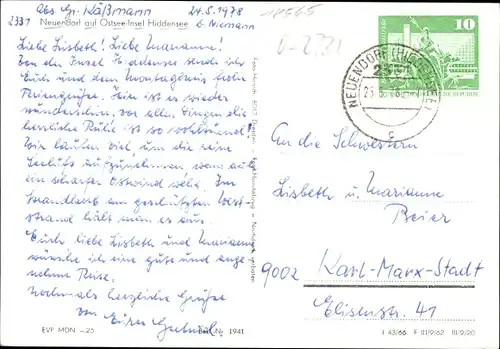 Abs. Gr. Käßmann 24.5.1978
2331 Neuendorf auf Ostsee-Insel Hiddensee b. Niemann
Liebe Lisbeth! Liebe Marianne!
Von der Insel Hiddensee sende ich
Euch und dem Montagkreis frohe
Feriengrüße. Hier ist es wieder
wunderschön, vor allen Dingen die
herrliche Ruhe ist so wohltuend!
Wir laufen viel um die reine
Seeluft aufzunehmen wenn auch
ein scharfer Ostwind weht. Im
Strandkorb am geschützten West-
strand hält man es aus.
Euch, liebe Lisbeth und Marianne
wünsche ich eine gute und ange-
nehme Reise.
Nochmals herzliche Grüße
von Eurer
EVP MDN -.25
Best.-Nr. 1941
18565
V-2331
10
NEUENDORF (HIDDENSEE)
2331
c
An die Schwestern
Lisbeth u. Marianne
Beier
9002 Karl-Marx-Stadt
Elisenstr. 41
I 43/66 F III/9/62 III/9/20